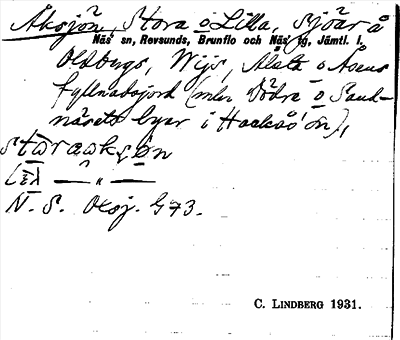 Åksjön, Stora o Lilla, sjöar å
Näs sn, Revsunds, Brunflo och Näs tg, Jämtl. l.
Oldbergs, Wijs, Målsta o Åsens
fyllnadsjord (mln Södra o Sand-
näsets byar i Hackås sn),
N. S. Oksj. G 73.
C. LINDBERG 1931.